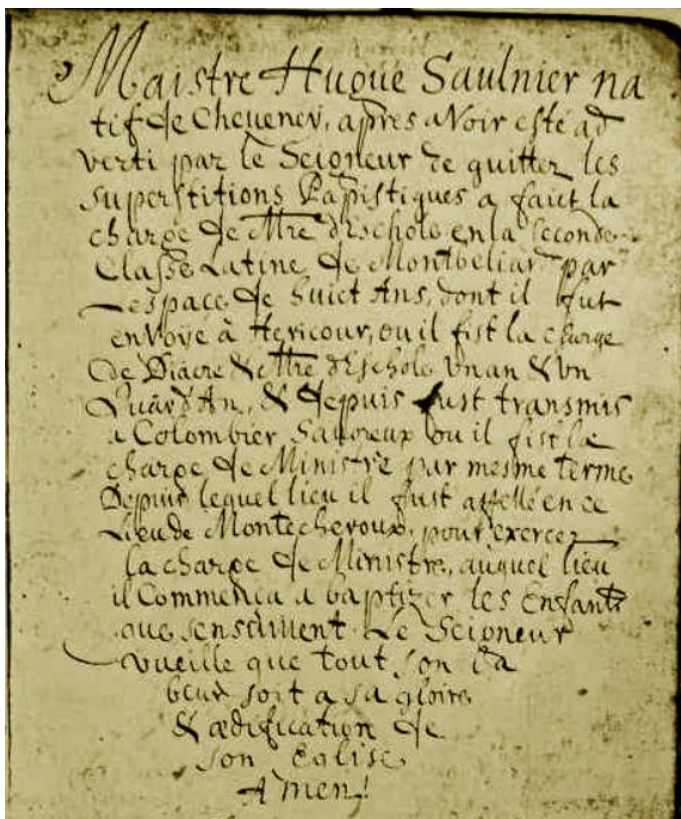 Maistre Hugue Saulnier na
tif de Chevenev, apres aVoir esté ad
verti par le Seigneur de quitter les
superstitions Papistiques a faict la
charge de Mtre d'Eschole en la seconde
Classe Latine de Montbeliard par
Lespace de huict Ans, dont il fut
enVoyé à Hericour, ou il fist la charge
De Diacre & Mtre d'Eschole Vn an & Vn
Quard d'An, & depuis fust transmis
a Colombier Savoreux ou il fist la
charge de Ministre par mesme terme
Depuis lequel lieu il fust appellé en ce
Lieu de Montecheroux, pour exercer
la charge de Ministre, auquel lieu
il Commença a baptizer les Enfants
que sensuiuent. Le Seigneur
vueille que tout son la
beur soit a sa gloire
& ædification de
son Eglise
Amen!